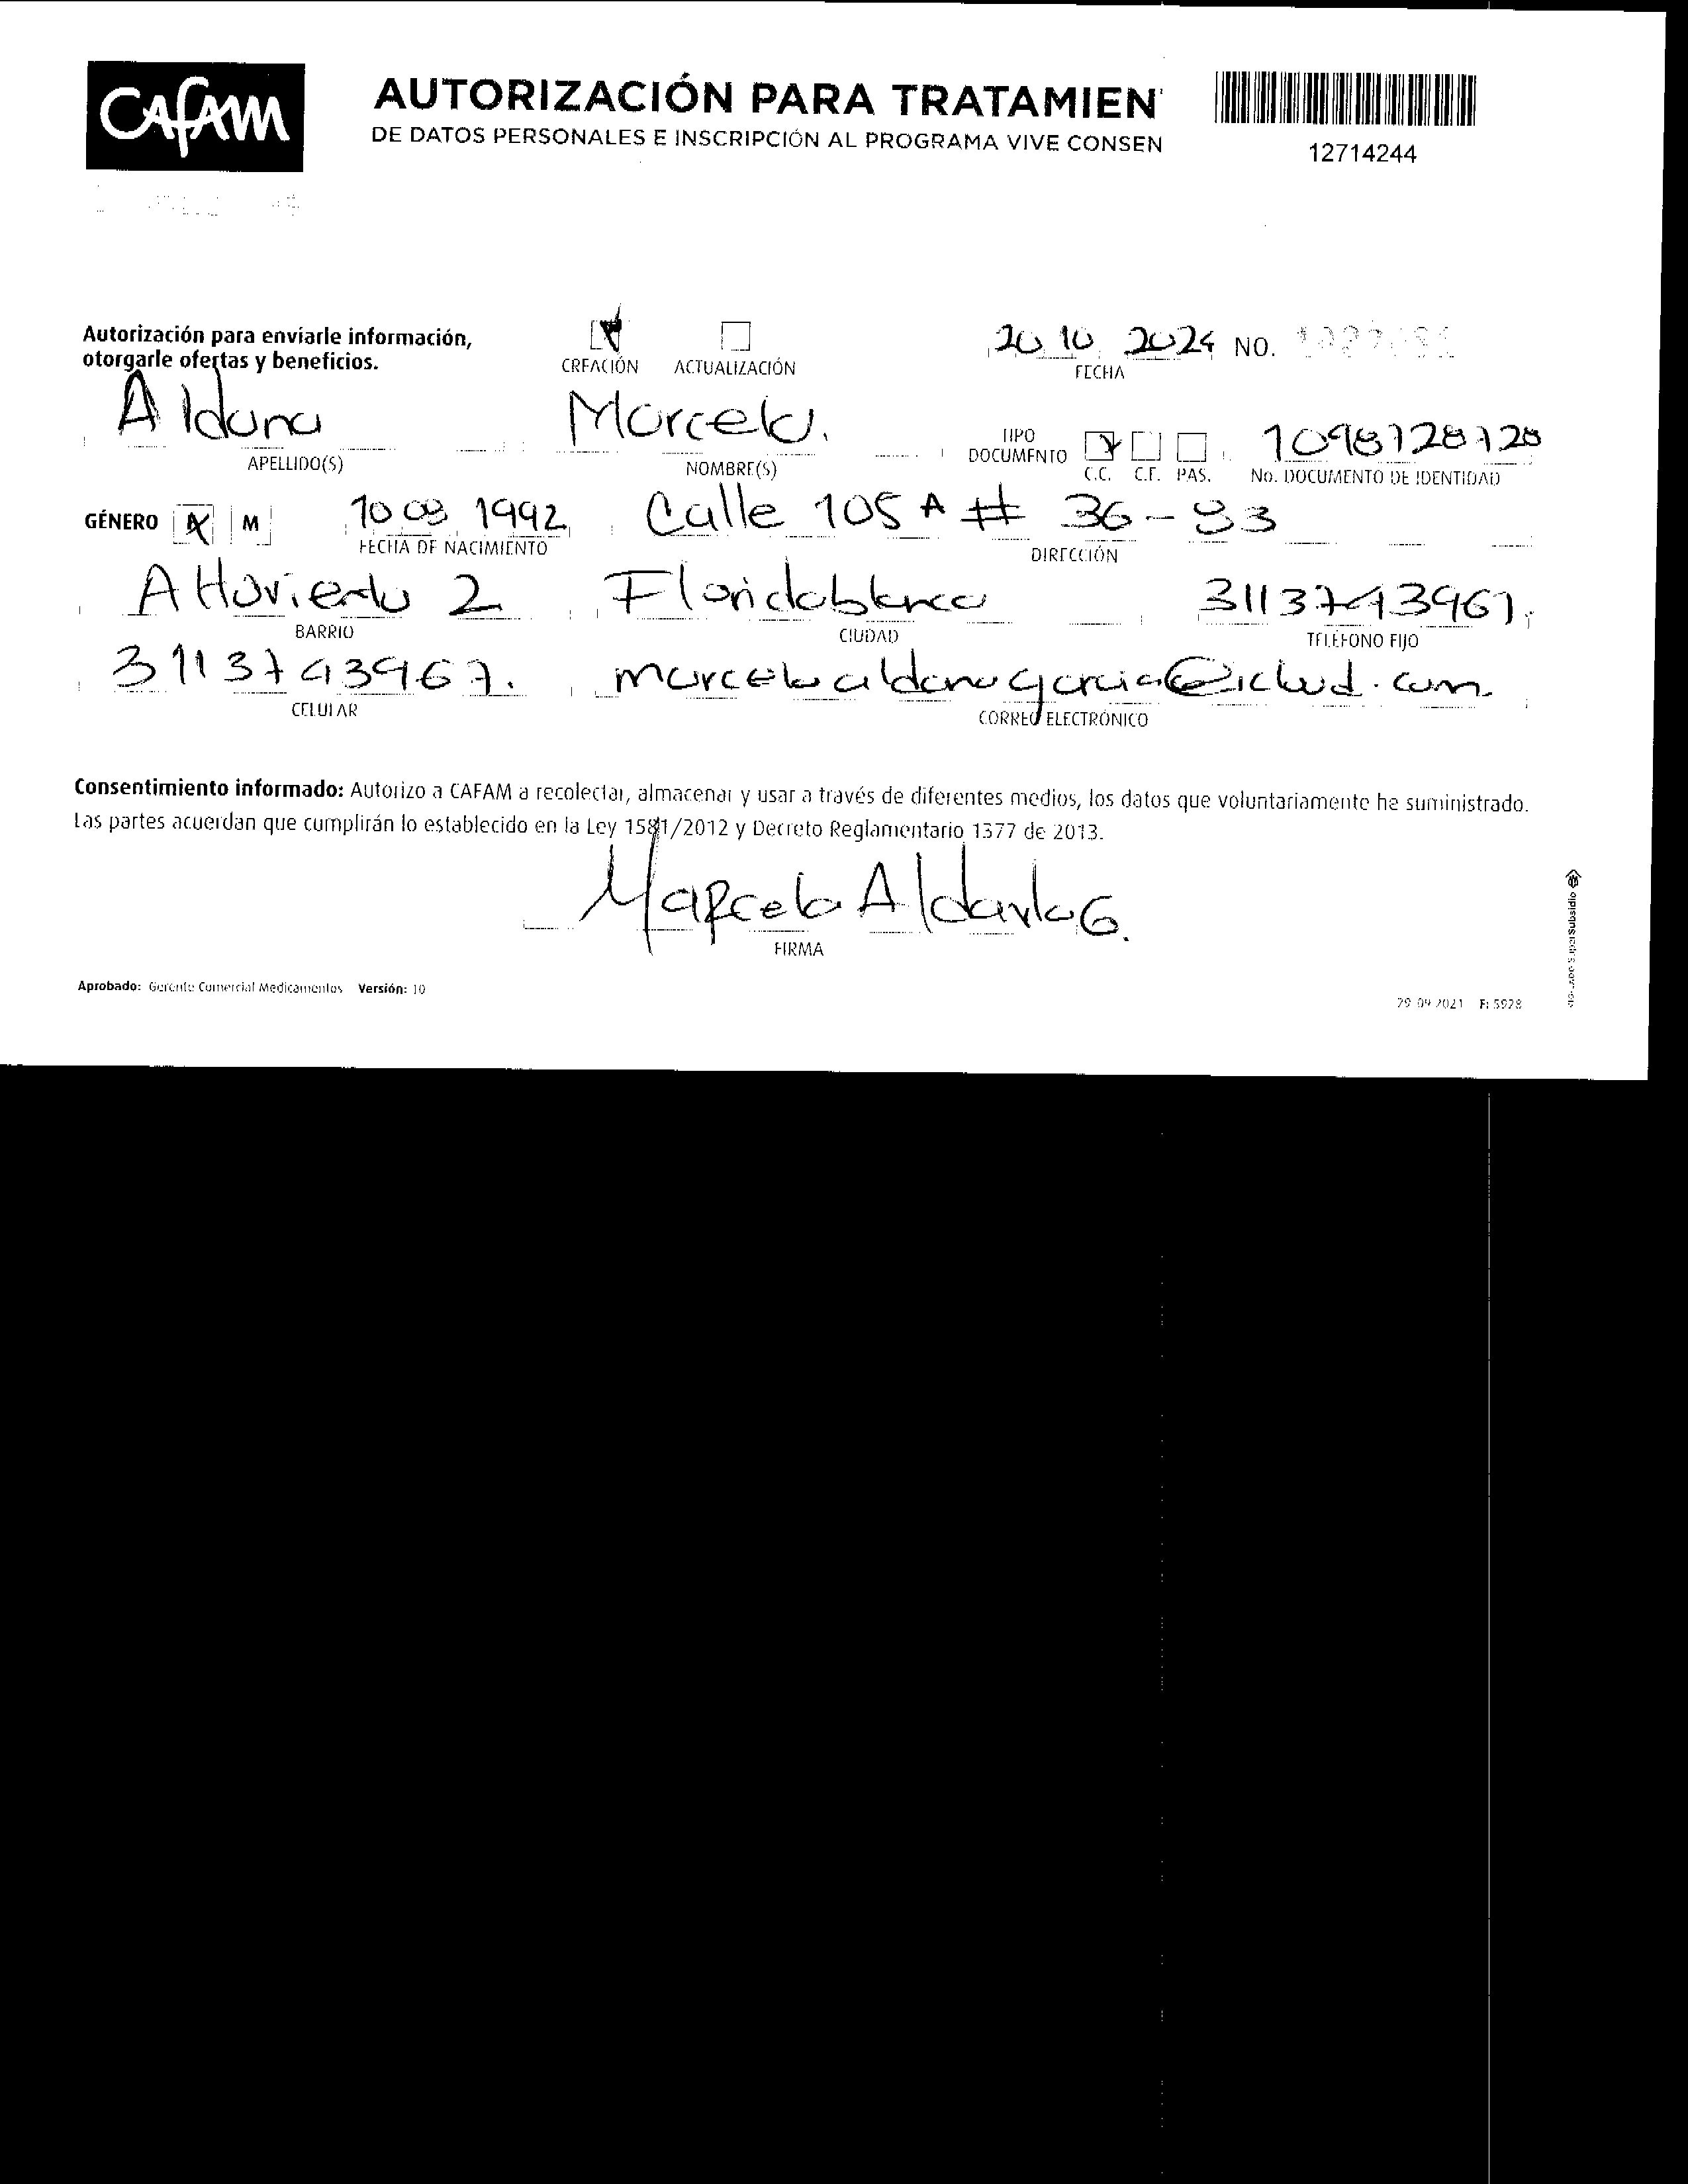 CAFAM
AUTORIZACIÓN PARA TRATAMIEN
DE DATOS PERSONALES E INSCRIPCIÓN AL PROGRAMA VIVE CONSEN
12714244
Autorización para enviarle información,
otorgarle ofertas y beneficios.
CREACIÓN ACTUALIZACIÓN
20 10 2024 NO.
FECHA
Aldana Marcela.
APELLIDO(S) NOMBRE(S)
TIPO DOCUMENTO C.C. C.E. PAS.
1098728728
No. DOCUMENTO DE IDENTIDAD
GÉNERO M
10 08 1992 Calle 105 A # 36-93
FECHA DE NACIMIENTO DIRECCIÓN
Altoviento 2 Floridablanca 3113743967.
BARRIO CIUDAD TELÉFONO FIJO
3113743967. marcelaaldanagarcia@iclud.com
CELULAR CORREO ELECTRÓNICO
Consentimiento informado: Autorizo a CAFAM a recolectar, almacenar y usar a través de diferentes medios, los datos que voluntariamente he suministrado.
Las partes acuerdan que cumplirán lo establecido en la Ley 1581/2012 y Decreto Reglamentario 1377 de 2013.
Marcela Aldana G.
FIRMA
Aprobado: Gerente Comercial Medicamentos Versión: 10
29 09 2021 F: 5928
SuperSubsidio